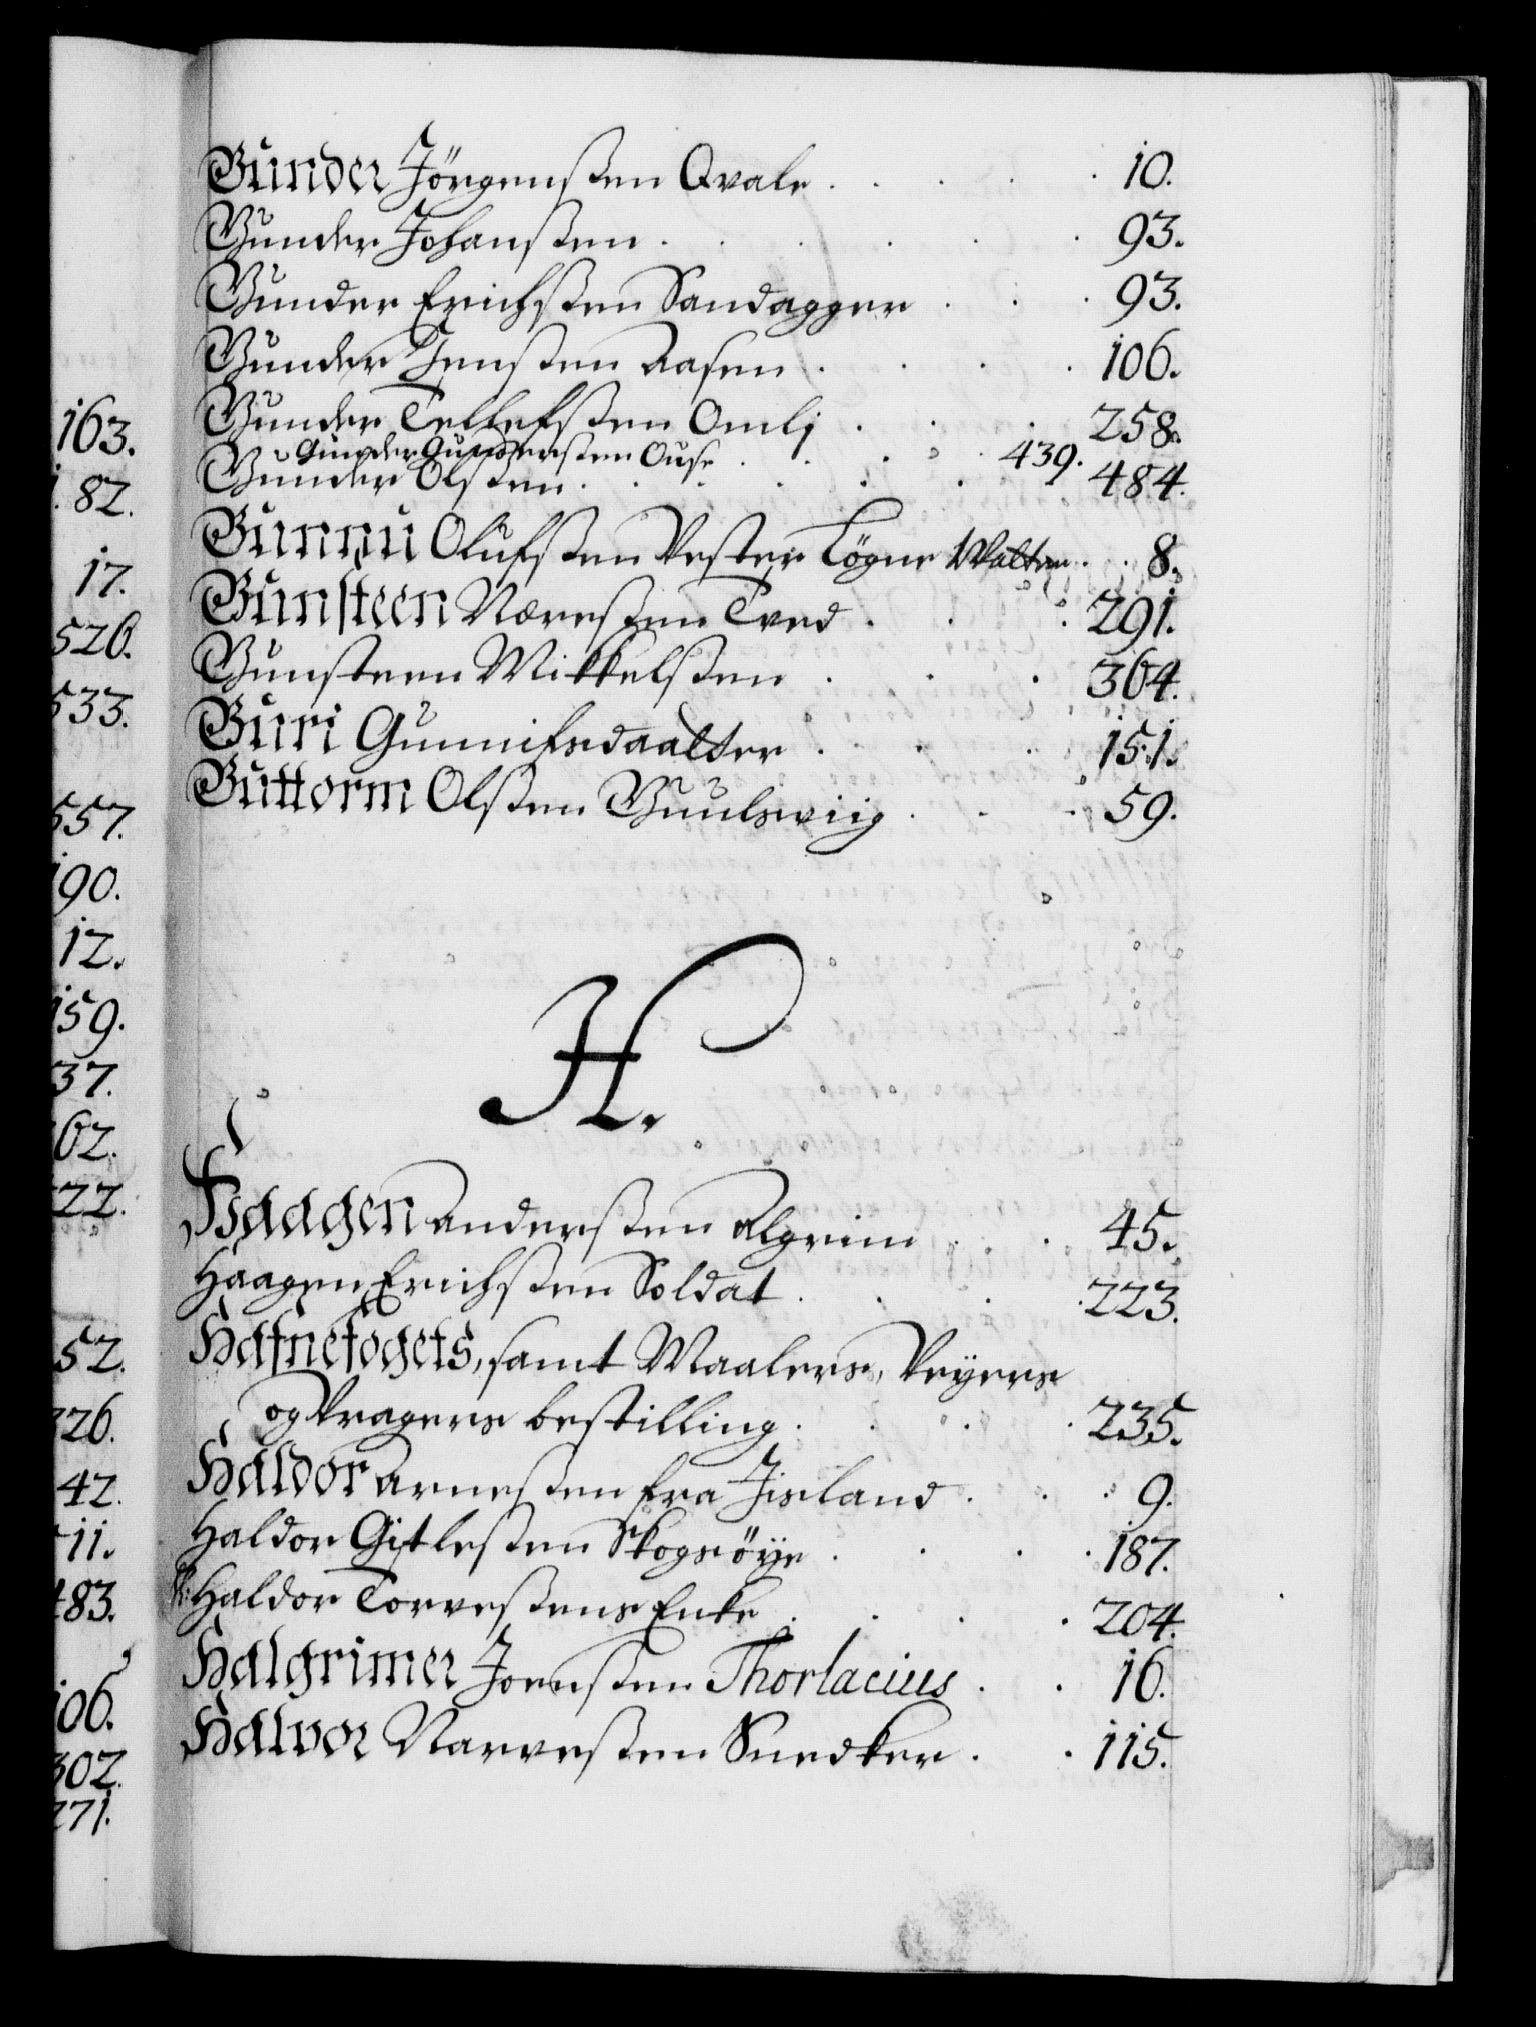 163.
82.
17.
526.
533.
557.
190.
12.
159.
37.
62.
222.
52.
326.
42.
11.
483.
106.
302.
271.
Gunder Jörgenßen Qvale . . . . 10.
Gunder Johanßen . . . . . 93.
Gunder Erichßen Sandagger . . . 93.
Gunder Jensßen Aasen . . . . 106.
Gunder Tellefsßen Omlj . . . 258.
Gunder Gunderßen Ouse . . . . 439.
Gunder Olßen . . . . . 484.
Gunnu Olufsßen Vester Løgne . . 8.
Gunsteen Næresßen Tved . . . 291.
Gunsteen Mikkelsßen . . . 364.
Guri Gunnifsdaatter . . . 151.
Guttorm Olsßen Guulsviig . . . 59.
H.
Haagen Andersßen Algrim . . 45.
Haagen Erichsßen Soldat . . . 223.
Hafnefogets, samt Maalers, Veyers
og Vragers bestilling . . . 235.
Haldor Arnesßen fra Jisland . . . 9.
Haldor Gitlesßen Skogsöye . . . 187.
Haldor Torvesßens Enke . . . . 204.
Halgrimer Jonsßen Thorlacius . . 16.
Halvor Narvesßen Snedker . . 115.